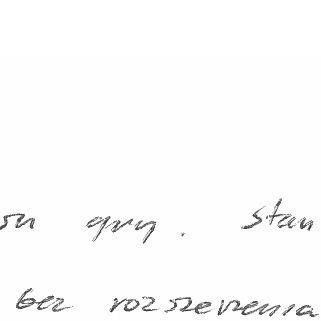 gry. stan
bez rozszerzenia